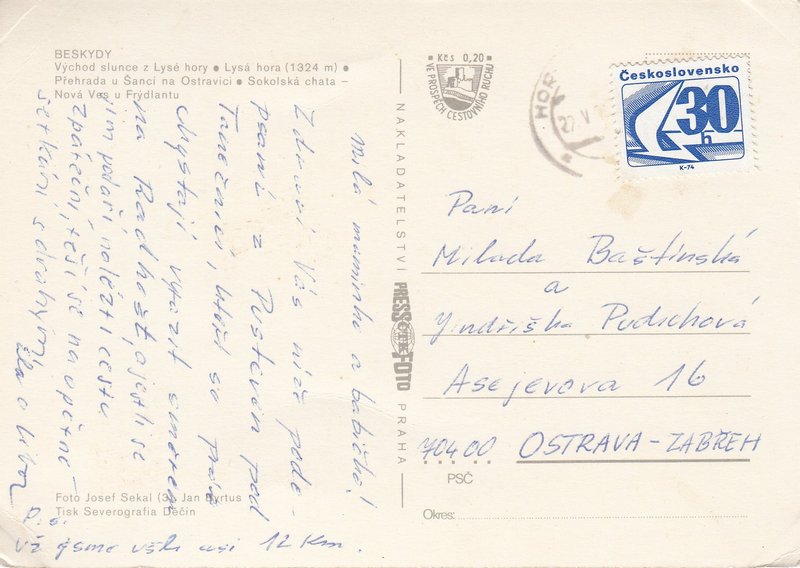 BESKYDY
Východ slunce z Lysé hory • Lysá hora (1324 m) •
Přehrada u Šancí na Ostravici • Sokolská chata –
Nová Ves u Frýdlantu
Milá maminko a babičko!
Zdraví Vás níže pode-
psaní z Pusteven pod
Tanečnicí, kteří se právě
chystají vyrazit směrem
na Radhošť, a jestli se
jim podaří nalézti cestu
zpáteční, těší se na opětné
setkání s drahými
a Libor
P.S.
Už jsme ušli asi 12 km.
Foto Josef Sekal (3), Jan Byrtus
Tisk Severografia Děčín
NAKLADATELSTVÍ
PRESSFOTO
PRAHA
Kčs 0,20
VE PROSPĚCH CESTOVNÍHO RUCHU
HOR
27.V
Československo
30
h
K-74
Paní
Milada Baštinská
a
Jindřiška Pudichová
Asejevova 16
70400 OSTRAVA-ZÁBŘEH
PSČ
Okres: